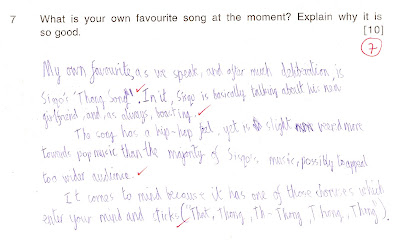 7 What is your own favourite song at the moment? Explain why it is
so good. [10]
7
My own favourite, as we speak, and after much deliberation, is
Sisqo's 'Thong Song'. In it, Sisqo is basically talking about his new
girlfriend, and, as always, boasting.
The song has a hip-hop feel, yet is slight more
towards pop music than the majority of Sisqo's music, possibly to appeal
to a wider audience.
It comes to mind because it has one of those choruses which
enter your mind and sticks ("That, Thong, Th-Thong, Thong, Thong").